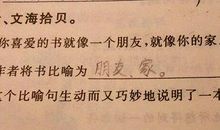 、文海拾贝。
你喜爱的书就像一个朋友，就像你的家，
作者将书比喻为 朋友、家。
这个比喻句生动而又巧妙地说明了一本